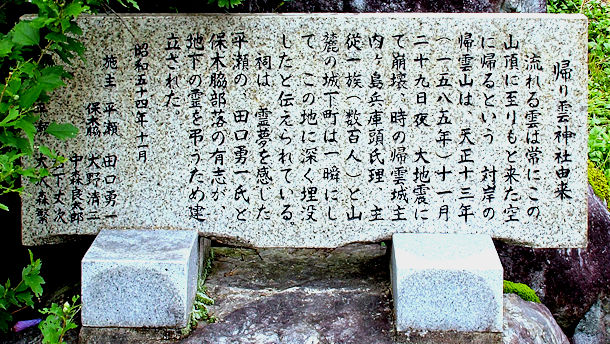 帰り雲神社由来
流れる雲は常にこの
山頂に至りもと来た空
に帰るという 対岸の
帰雲山は、天正十三年
(一五八五年)十一月
二十九日夜 大地震に
て崩壊、時の帰雲城主
内ヶ島兵庫頭氏理 主
従一族(数百人)と山
麓の城下町は一瞬にし
て、この地に深く埋没
したと伝えられている。
祠は、霊夢を感した
平瀬の、田口勇一氏と
保木脇部落の有志が
地下の霊を弔うため建
立された。
昭和五十四年十一月
地主 平瀬 田口勇一
保木脇 大野清二
中森良郎
下丈次
平瀬 大 森繁